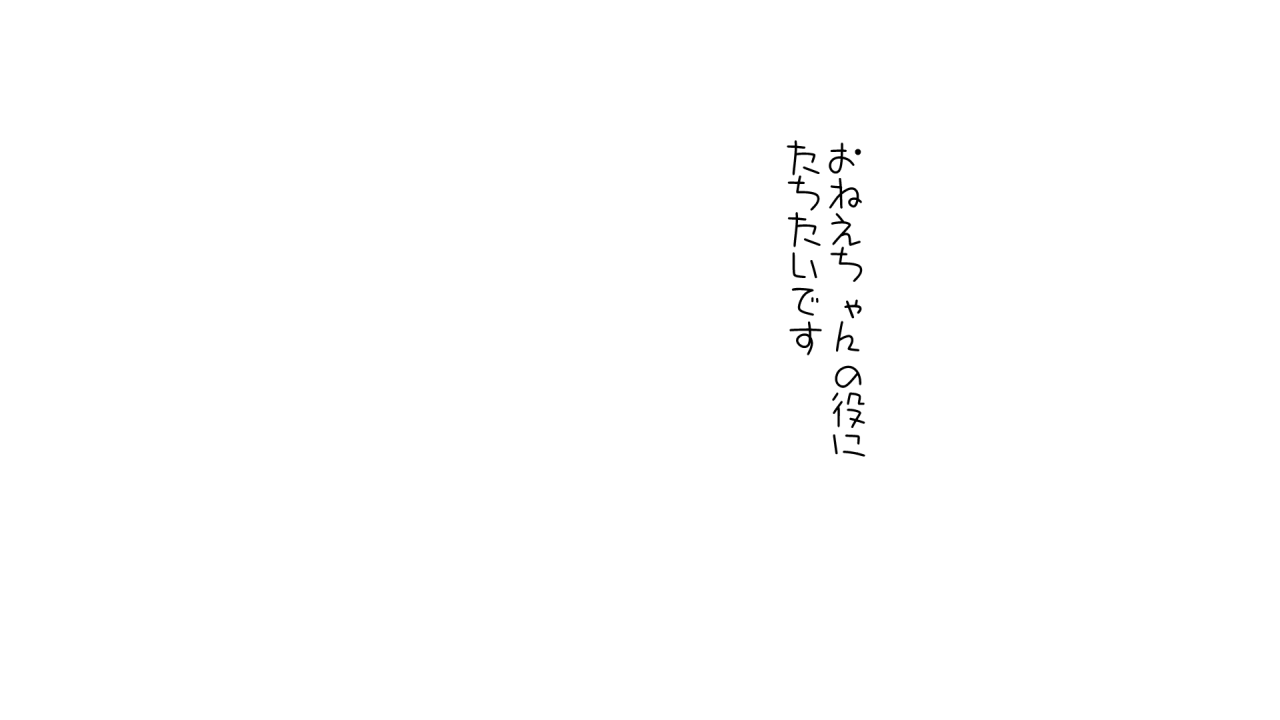 おねえちゃんの役に
たちたいです